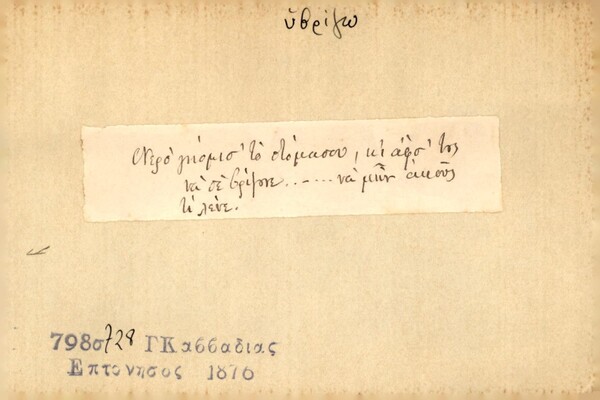 ὑβρίζω
Νερὸ γιόμισ' τὸ στόμα σου, κι ἄφσ' τους
νὰ σὲ βρίζουνε...-...νὰ μὴν ἀκοῦς
τί λένε.
798σ 728 ΓΚαββαδιας
Επτονησος 1876